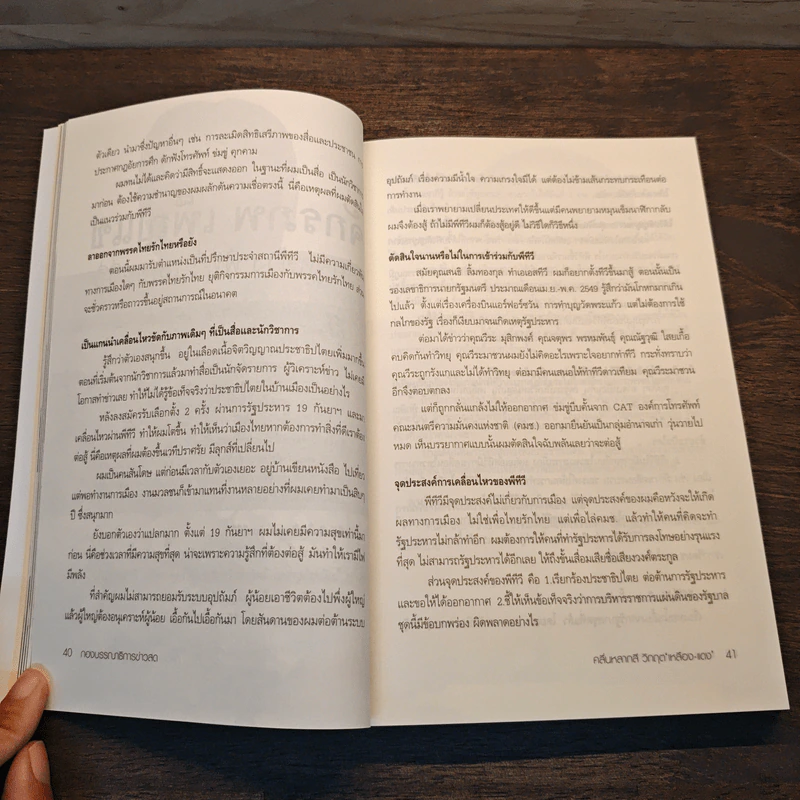 ตัวเดียว นำมาซึ่งปัญหาอื่นๆ เช่น การละเมิดสิทธิเสรีภาพของสื่อและประชาชน
ประกาศกฎอัยการศึก ดักฟังโทรศัพท์ ข่มขู่ คุกคาม
ผมทนไม่ได้และคิดว่ามีสิทธิ์จะแสดงออก ในฐานะที่ผมเป็นสื่อ เป็นนักวิชา
มาก่อน ต้องใช้ความชำนาญของผมผลักดันความเชื่อตรงนี้ นี่คือเหตุผลที่ผมตัดสิน
เป็นแนวร่วมกับพีทีวี
ลาออกจากพรรคไทยรักไทยหรือยัง
ตอนนี้ผมมารับตำแหน่งเป็นที่ปรึกษาประจำสถานีพีทีวี ไม่มีความเกี่ยวพัน
ทางการเมืองใดๆ กับพรรคไทยรักไทย ยุติกิจกรรมการเมืองกับพรรคไทยรักไทย ส่วน
จะชั่วคราวหรือถาวรขึ้นอยู่สถานการณ์ในอนาคต
เป็นแกนนำเคลื่อนไหวขัดกับภาพเดิมๆ ที่เป็นสื่อและนักวิชาการ
รู้สึกว่าตัวเองสนุกขึ้น อยู่ในเลือดเนื้อจิตวิญญาณประชาธิปไตยเพิ่มมากขึ้น
ตอนที่เริ่มต้นจากนักวิชาการแล้วมาทำสื่อเป็นนักจัดรายการ ผู้วิเคราะห์ข่าว ไม่เคยมี
โอกาสทำข่าวเลย ทำให้ไม่ได้รู้ข้อเท็จจริงว่าประชาธิปไตยในบ้านเมืองเป็นอย่างไร
หลังลงสมัครรับเลือกตั้ง 2 ครั้ง ผ่านการรัฐประหาร 19 กันยาฯ และมา
เคลื่อนไหวผ่านพีทีวี ทำให้ผมโตขึ้น ทำให้เห็นว่าเมืองไทยหากต้องการทำสิ่งที่ดีเราต้อง
ต่อสู้ นี่คือเหตุผลที่ผมต้องขึ้นเวทีปราศรัย มีลุกส์ที่เปลี่ยนไป
ผมเป็นคนสันโดษ แต่ก่อนมีเวลากับตัวเองเยอะ อยู่บ้านเขียนหนังสือ ไปเที่ยว
แต่พอทำงานการเมือง งานมวลชนก็เข้ามาแทนที่งานหลายอย่างที่ผมเคยทำมาเป็นสิบๆ
ปี ซึ่งสนุกมาก
ยังบอกตัวเองว่าแปลกมาก ตั้งแต่ 19 กันยาฯ ผมไม่เคยมีความสุขเท่านี้มา
ก่อน นี่คือช่วงเวลาที่มีความสุขที่สุด น่าจะเพราะความรู้สึกที่ต้องต่อสู้ มันทำให้เรามีไฟ
มีพลัง
ที่สำคัญผมไม่สามารถยอมรับระบบอุปถัมภ์ ผู้น้อยเอาชีวิตต้องไปพึ่งผู้ใหญ่
แล้วผู้ใหญ่ต้องอนุเคราะห์ผู้น้อย เอื้อกันไปเอื้อกันมา โดยสันดานของผมต่อต้านระบบ
40 กองบรรณาธิการข่าวสด
อุปถัมภ์ เรื่องความมีน้ำใจ ความเกรงใจมีได้ แต่ต้องไม่ข้ามเส้นกระทบกระเทือนต่อ
การทำงาน
เมื่อเราพยายามเปลี่ยนประเทศให้ดีขึ้นแต่มีคนพยายามหมุนเข็มนาฬิกากลับ
ผมจึงต้องสู้ ถ้าไม่มีพีทีวีผมก็ต้องสู้อยู่ดี ไม่วิธีใดก็วิธีหนึ่ง
ตัดสินใจนานหรือไม่ในการเข้าร่วมกับพีทีวี
สมัยคุณสนธิ ลิ้มทองกุล ทำเอเอสทีวี ผมก็อยากตั้งทีวีขึ้นมาสู้ ตอนนั้นเป็น
รองเลขาธิการนายกรัฐมนตรี ประมาณเดือนเม.ย.-พ.ค. 2549 รู้สึกว่ามันโกหกมากเกิน
ไปแล้ว ตั้งแต่เรื่องเครื่องบินแอร์ฟอร์ซวัน การทำบุญวัดพระแก้ว แต่ไม่ต้องการใช้
กลไกของรัฐ เรื่องก็เงียบมาจนเกิดเหตุรัฐประหาร
ต่อมาได้ข่าวว่าคุณวีระ มุสิกพงศ์ คุณจตุพร พรหมพันธุ์ คุณณัฐวุฒิ ใสยเกื้อ
คบคิดกันทำวิทยุ คุณวีระมาชวนผมยังไม่คิดอะไรเพราะใจอยากทำทีวี กระทั่งทราบว่า
คุณวีระถูกรังแกและไม่ได้ทำวิทยุ ต่อมามีคนเสนอให้ทำทีวีดาวเทียม คุณวีระมาชวน
อีกจึงตอบตกลง
แต่ก็ถูกกลั่นแกล้งไม่ให้ออกอากาศ ข่มขู่บีบคั้นจาก CAT องค์การโทรศัพท์
คณะมนตรีความมั่นคงแห่งชาติ (คมช.) ออกมายืนยันเป็นกลุ่มอำนาจเก่า วุ่นวายไป
หมด เห็นบรรยากาศแบบนั้นผมตัดสินใจฉับพลันเลยว่าจะต่อสู้
จุดประสงค์การเคลื่อนไหวของพีทีวี
พีทีวีมีจุดประสงค์ไม่เกี่ยวกับการเมือง แต่จุดประสงค์ของผมคือหวังจะให้เกิด
ผลทางการเมือง ไม่ใช่เพื่อไทยรักไทย แต่เพื่อไล่คมช. แล้วทำให้คนที่คิดจะทำ
รัฐประหารไม่กล้าทำอีก ผมต้องการให้คนที่ทำรัฐประหารได้รับการลงโทษอย่างรุนแรง
ที่สุด ไม่สามารถรัฐประหารได้อีกเลย ให้ถึงขั้นเสื่อมเสียชื่อเสียงวงศ์ตระกูล
ส่วนจุดประสงค์ของพีทีวี คือ 1.เรียกร้องประชาธิปไตย ต่อต้านการรัฐประหาร
และขอให้ได้ออกอากาศ 2.ชี้ให้เห็นข้อเท็จจริงว่าการบริหารราชการแผ่นดินของรัฐบาล
ชุดนี้มีข้อบกพร่อง ผิดพลาดอย่างไร
คลื่นหลากสี วิกฤต'เหลือง-แดง' 41